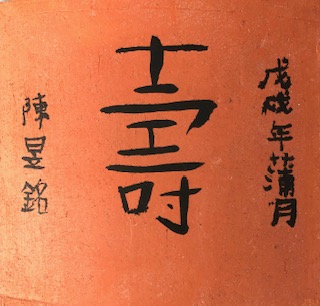 戊戌年蒲月
壽
陳昱銘